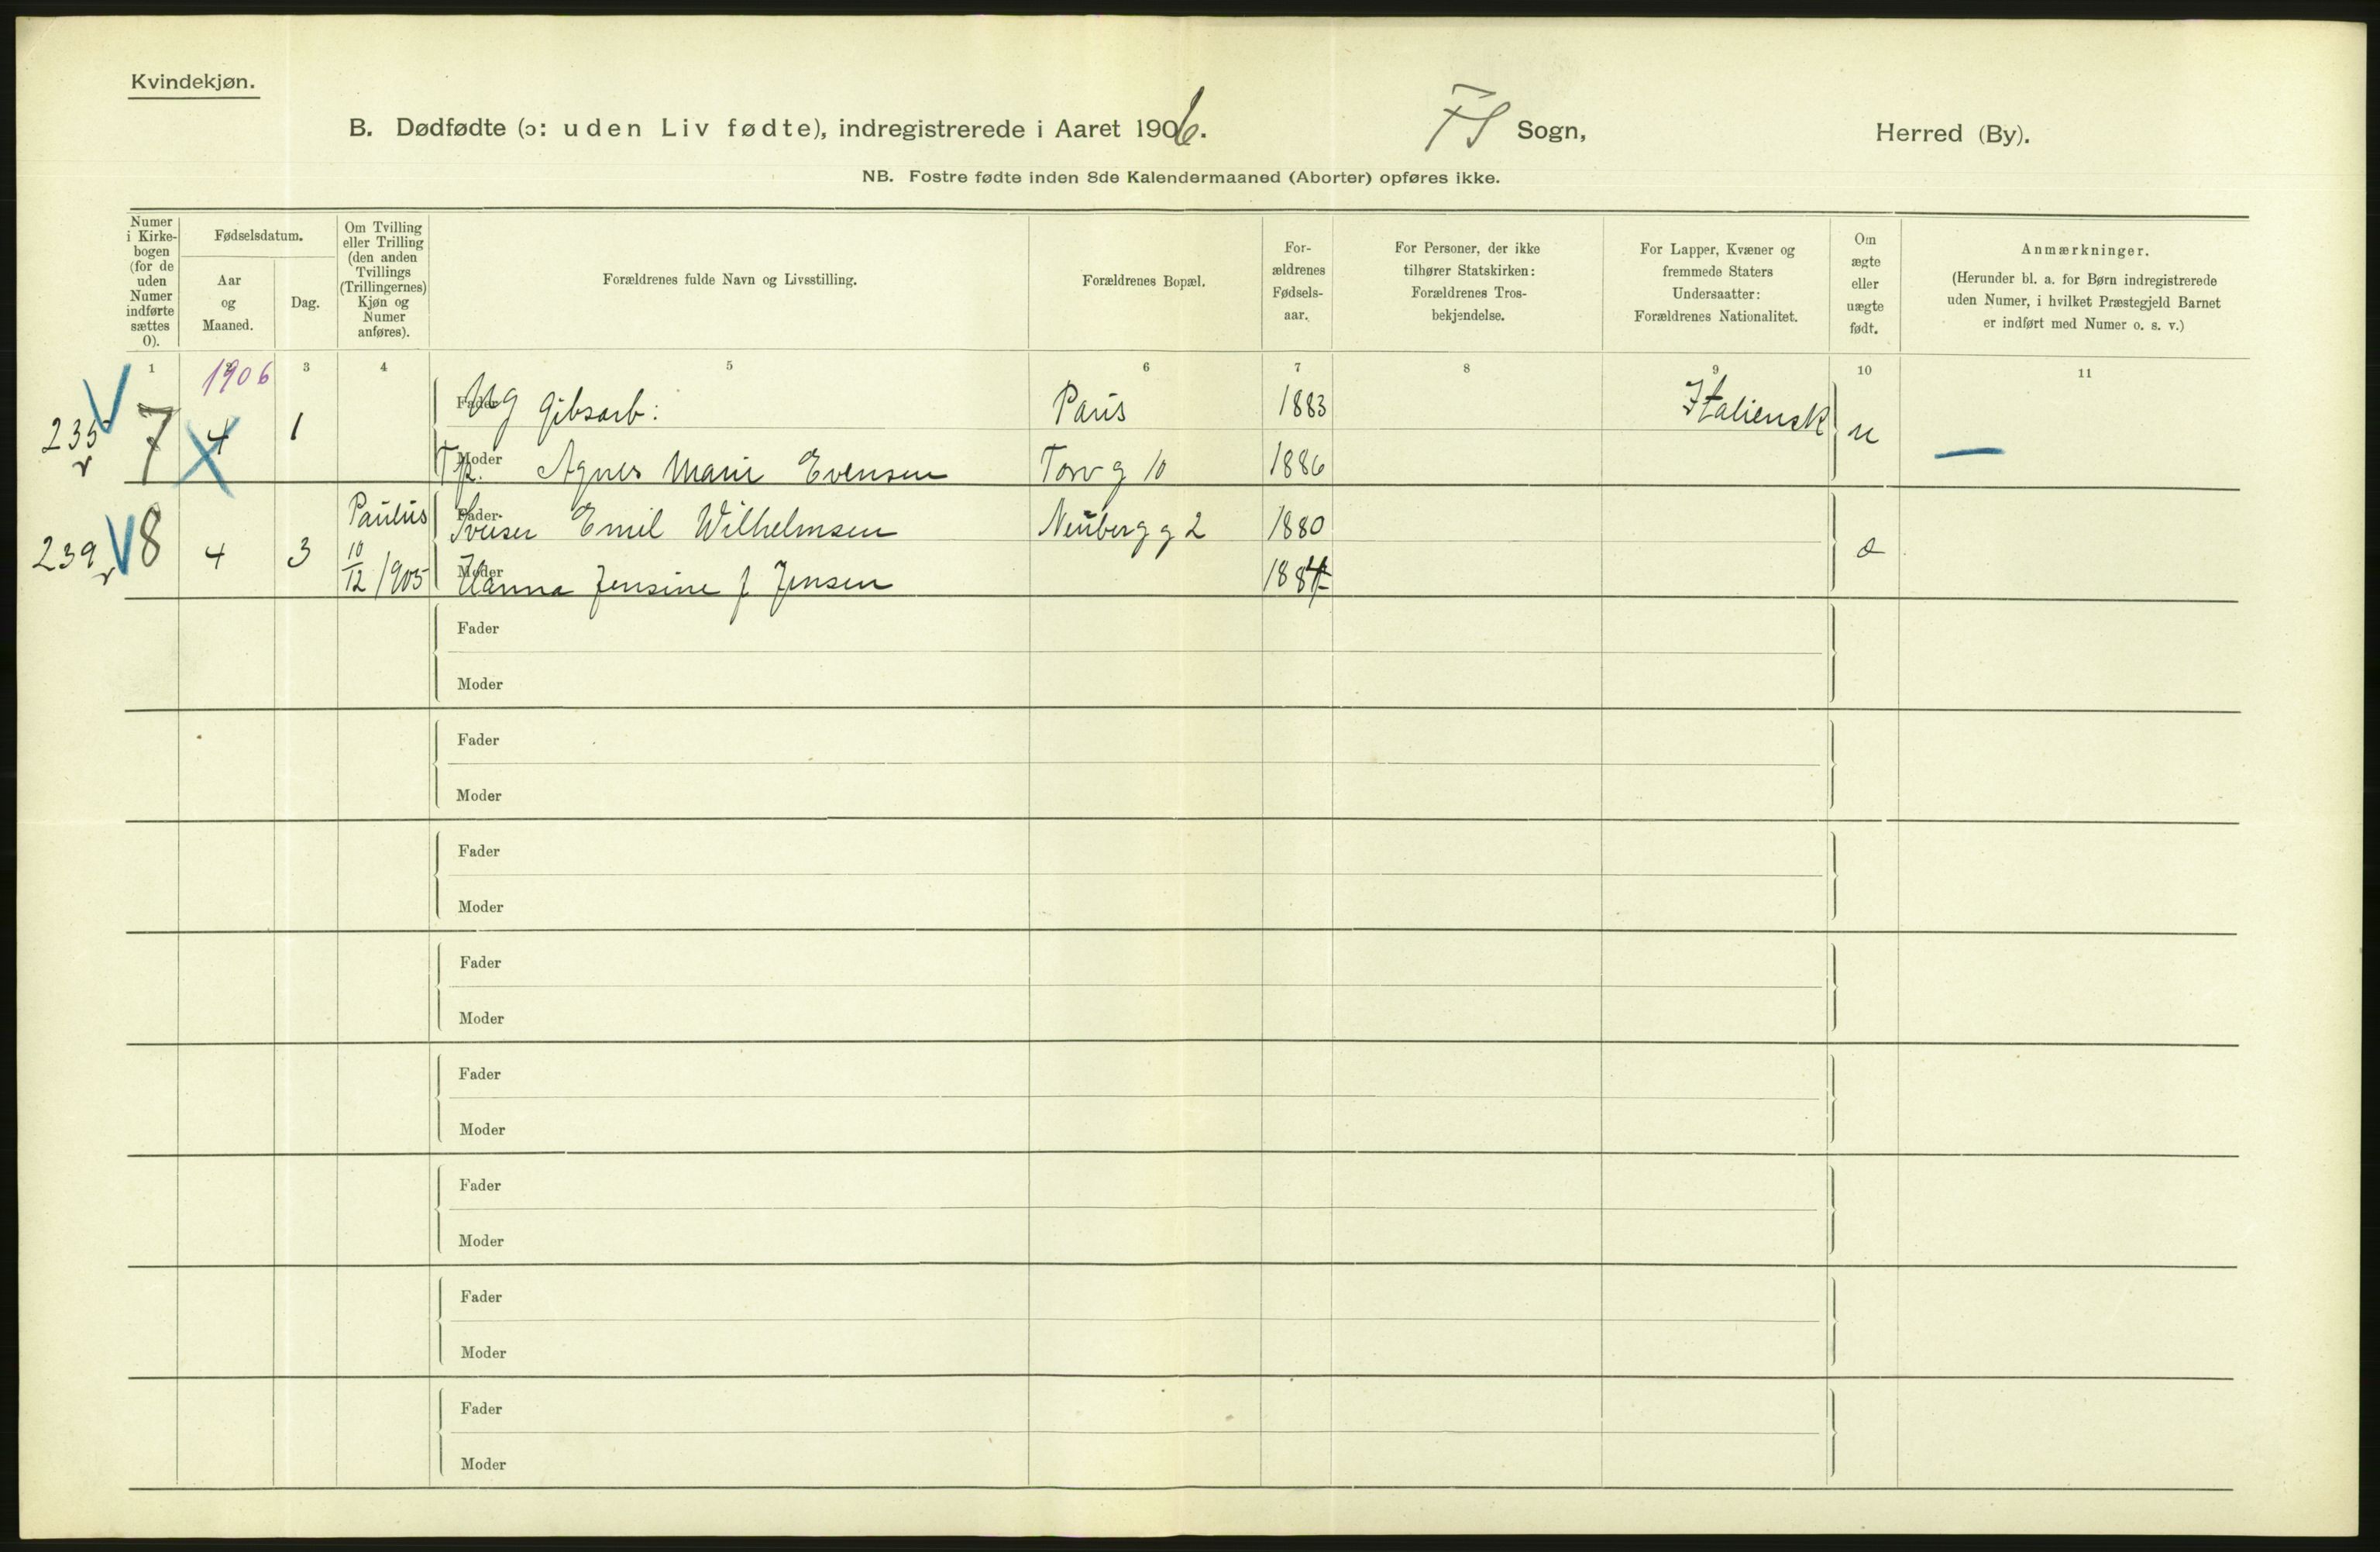 Kvindekjøn.
B. Dødfødte (ɔ: uden Liv fødte), indregistrerede i Aaret 1906. FS Sogn, Herred (By).
NB. Fostre fødte inden 8de Kalendermaaned (Aborter) opføres ikke.
Numer i Kirkebogen (for de uden Numer indførte sættes 0).
Fødselsdatum.
Aar og Maaned.
Dag.
Om Tvilling eller Trilling (den anden Tvillings (Trillingernes) Kjøn og Numer anføres).
Forældrenes fulde Navn og Livsstilling.
Forældrenes Bopæl.
Forældrenes Fødselsaar.
For Personer, der ikke tilhører Statskirken: Forældrenes Trosbekjendelse.
For Lapper, Kvæner og fremmede Staters Undersaatter: Forældrenes Nationalitet.
Om ægte eller uægte født.
Anmærkninger.
(Herunder bl. a. for Børn indregistrerede uden Numer, i hvilket Præstegjeld Barnet er indført med Numer o. s. v.)
1 2 3 4 5 6 7 8 9 10 11
1906
235 7 4 1 Fader Ug Gibsarb: Paris 1883 Italiensk u
Moder Tjp. Agnes Marie Evensen Torvg 10 1886
239 8 4 3 Paulus 10/12 1905 Fader Emil Wilhelmsen Neubergg 2 1880 æ
Moder Hanna Jensine f Jensen 1884
Fader
Moder
Fader
Moder
Fader
Moder
Fader
Moder
Fader
Moder
Fader
Moder
Fader
Moder
Fader
Moder